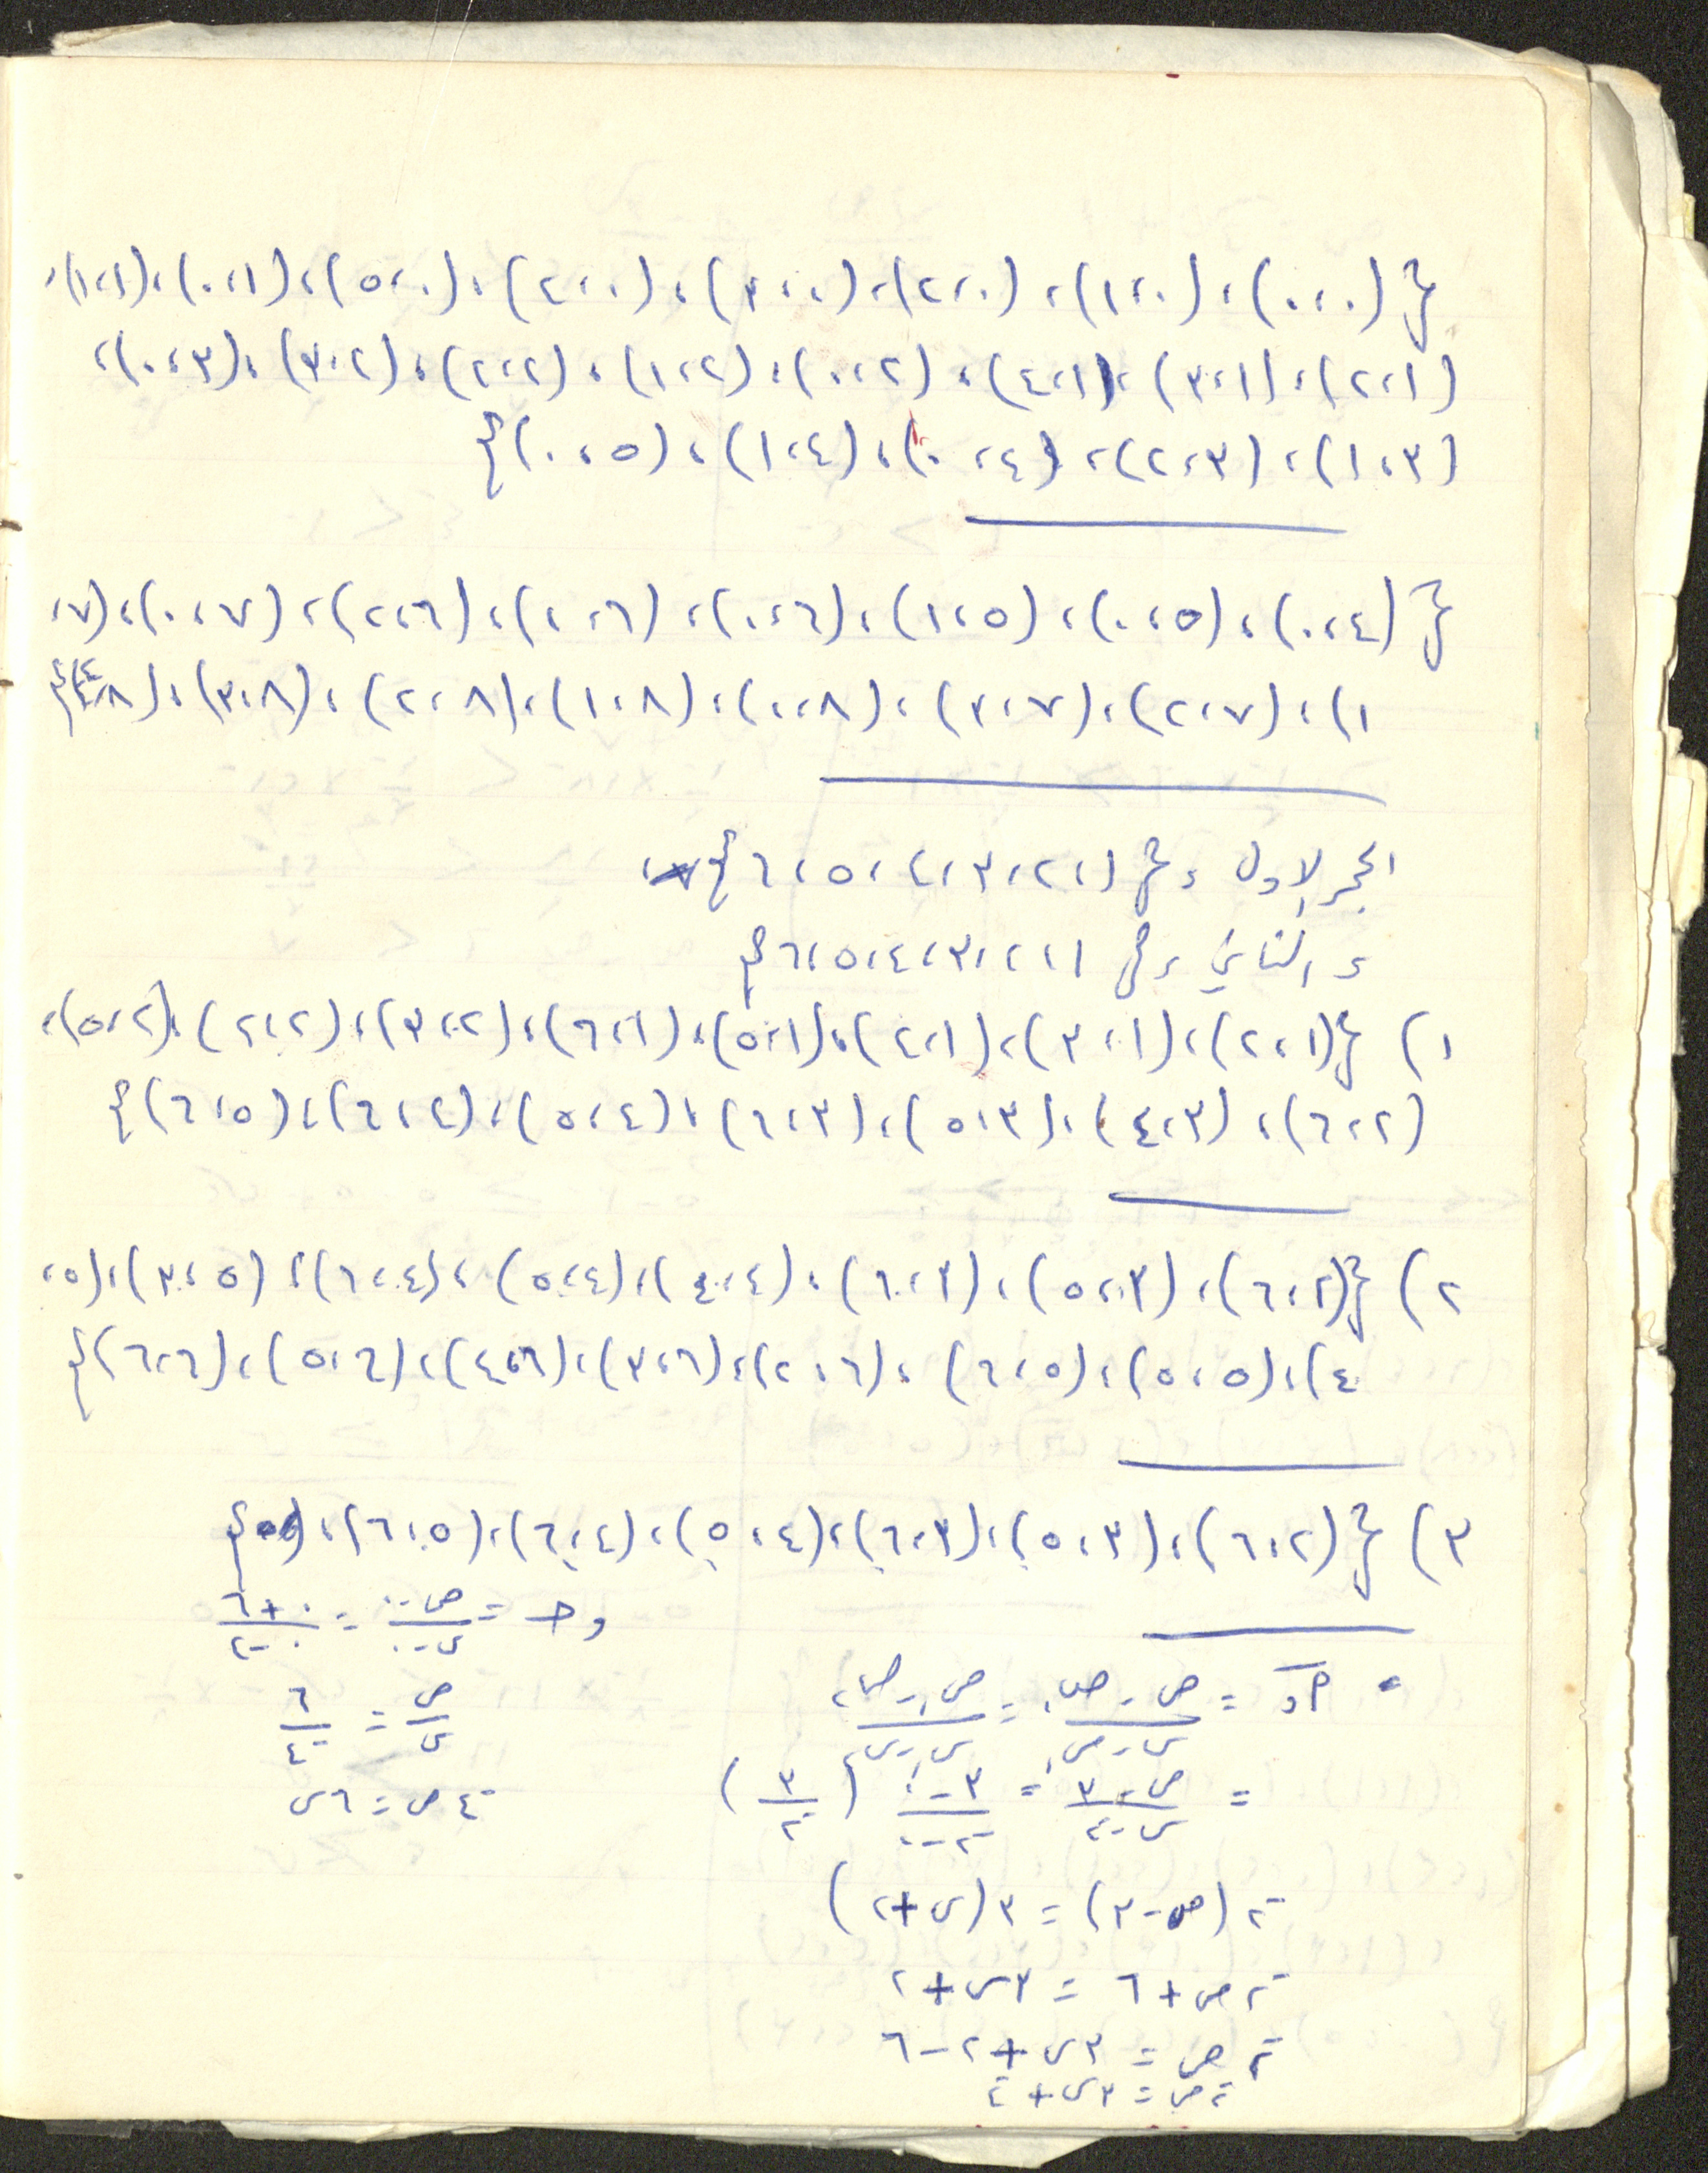 {(٠،٠)،(٠،١)،(٠،٢)،(٠،٣)،(٠،٤)،(٠،٥)،(١،٠)،(١،١)،
(١،٢)،(١،٣)،(١،٤)،(٢،٠)،(٢،١)،(٢،٢)،(٢،٣)،(٣،٠)،
(٣،١)،(٣،٢)،(٤،٠)،(٤،١)،(٥،٠)}
{(٤،٠)،(٥،٠)،(٥،١)،(٦،٠)،(٦،١)،(٦،٢)،(٧،٠)،(٧،
١)،(٧،٢)،(٧،٣)،(٨،٠)،(٨،١)،(٨،٢)،(٨،٣)،(٨،٤)}
الحجر الاول = {١،٢،٣،٤،٥،٦}
و الثاني = {١،٢،٣،٤،٥،٦}
١) {(١،٢)،(١،٣)،(١،٤)،(١،٥)،(١،٦)،(٢،٣)،(٢،٤)،(٢،٥)،
(٢،٦)،(٣،٤)،(٣،٥)،(٣،٦)،(٤،٥)،(٤،٦)،(٥،٦)}
٢) {(٢،٦)،(٣،٥)،(٣،٦)،(٤،٤)،(٤،٥)،(٤،٦)،(٥،٣)،(٥،
٤)،(٥،٥)،(٥،٦)،(٦،٢)،(٦،٣)،(٦،٤)،(٦،٥)،(٦،٦)}
٣) {(٢،٦)،(٣،٥)،(٣،٦)،(٤،٥)،(٤،٦)،(٥،٦)}
و حـ = ص-٠ / س-٠ = ٠+٦ / ٠-٤
ص / س = ٦ / -٤
-٤ص = ٦س
• م و = ص-ص١ / س-س١ = ص١-ص٢ / س١-س٢
= ص-٣ / س-٢ = ٣-٠ / -٢-٠ (٣ / -٢)
-٢(ص-٣) = ٣(س+٢)
-٢ص+٦ = ٣س+٢
-٢ص = ٣س+٢-٦
-٢ص = ٣س+-٤